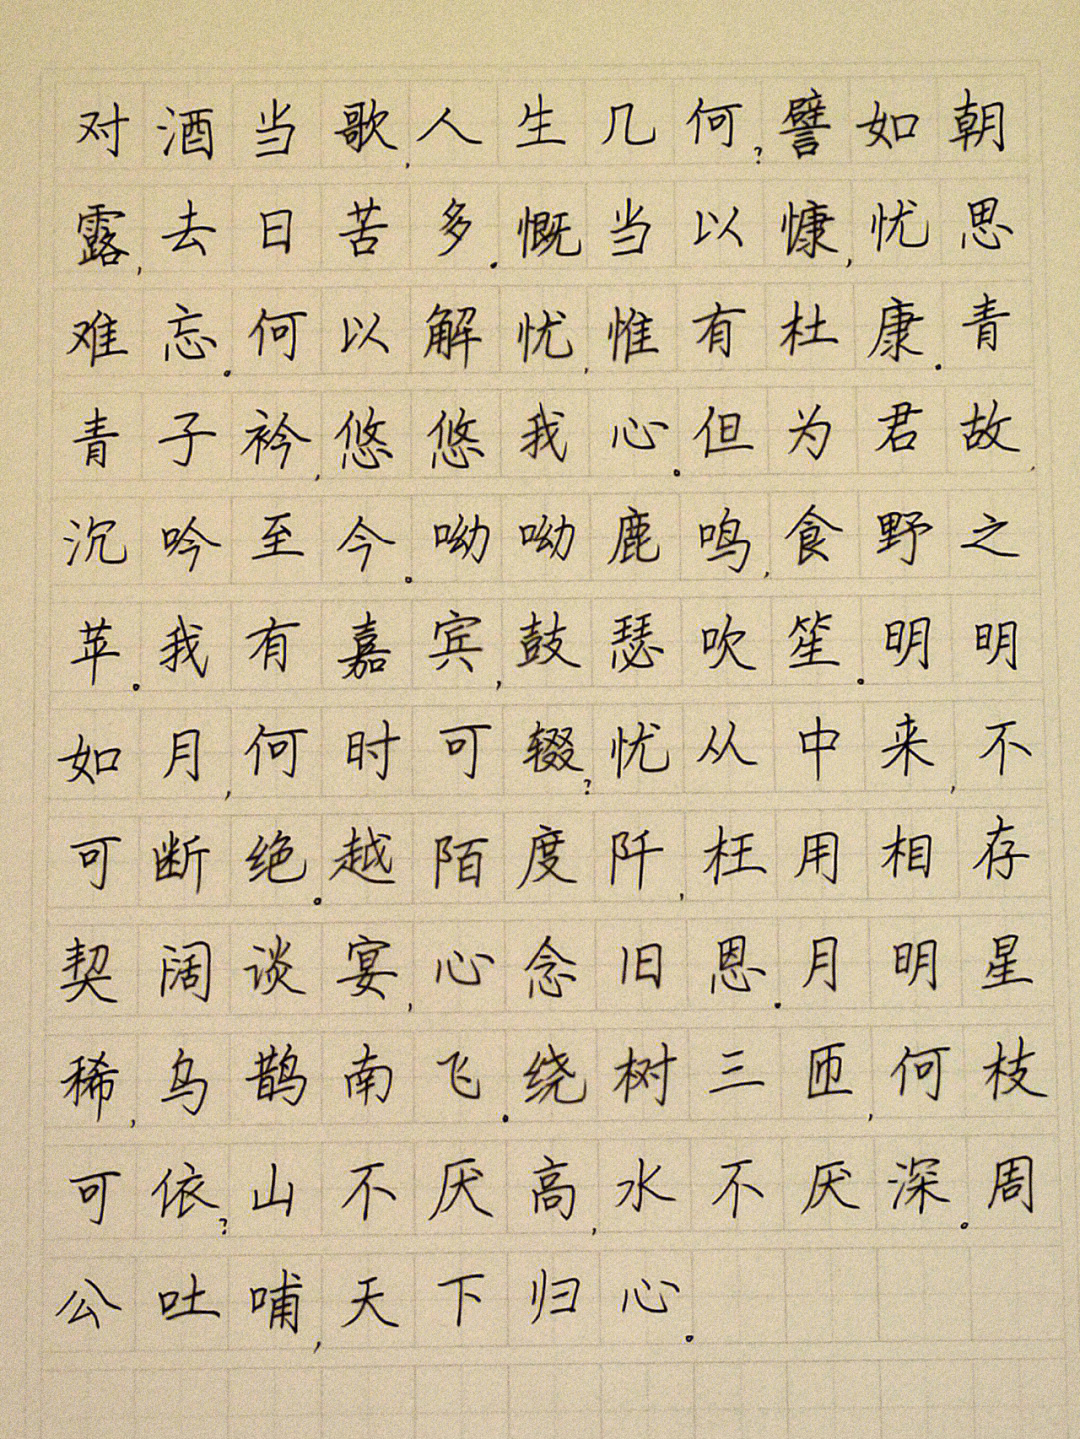 对酒当歌,人生几何?譬如朝
露,去日苦多。慨当以慷,忧思
难忘。何以解忧,惟有杜康。青
青子衿,悠悠我心。但为君故,
沉吟至今。呦呦鹿鸣,食野之
苹。我有嘉宾,鼓瑟吹笙。明明
如月,何时可辍?忧从中来,不
可断绝。越陌度阡,枉用相存
契阔谈宴,心念旧恩。月明星
稀,乌鹊南飞。绕树三匝,何枝
可依?山不厌高,水不厌深。周
公吐哺,天下归心。